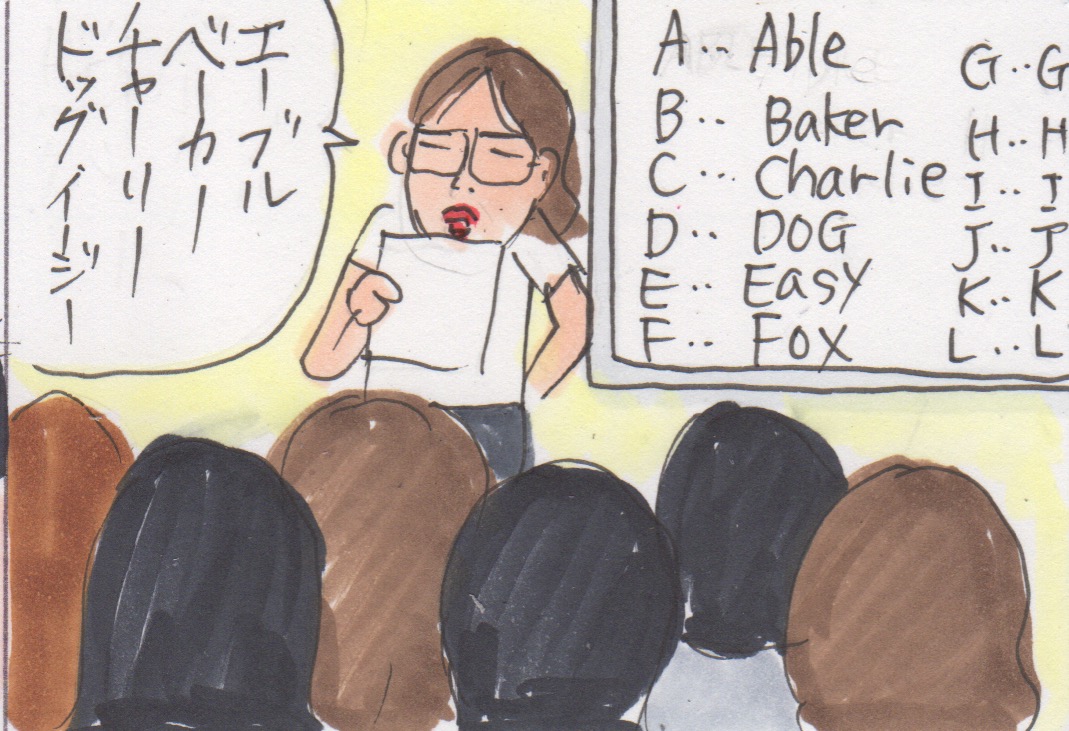 エーブル
ベーカー
チャーリー
ドッグイージー
A‥Able
B‥Baker
C‥Charlie
D‥DOG
E‥Easy
F‥Fox
G‥G
H‥H
I‥I
J‥J
K‥K
L‥L